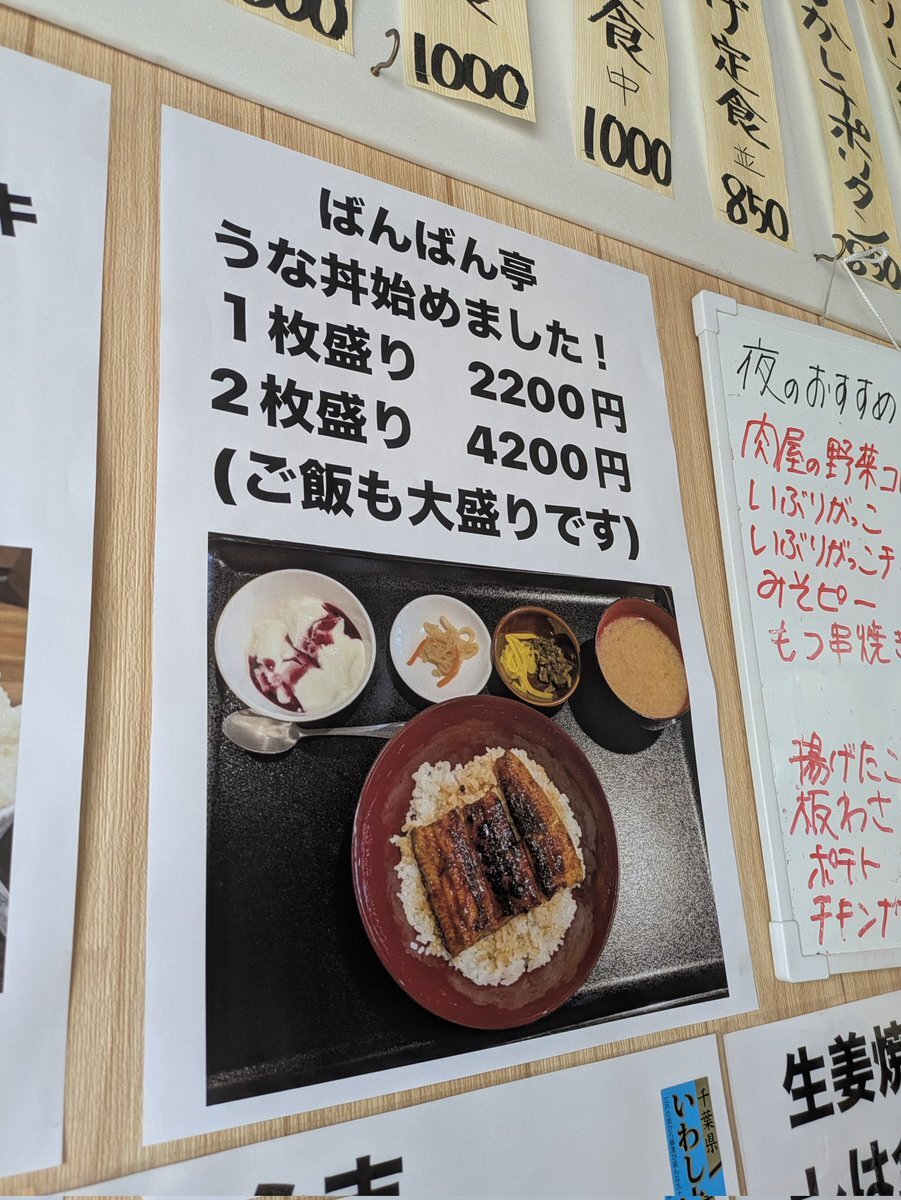 1000
食中
1000
げ定食並
850
かしナポリタン
ばんばん亭
うな丼始めました！
1枚盛り 2200円
2枚盛り 4200円
(ご飯も大盛りです)
キ
夜のおすすめ
肉屋の野菜コ
いぶりがっこ
いぶりがっこチ
みそピー
もつ串焼き
揚げたこ
板わさ
ポテト
チキン
生姜焼
千葉県
いわし